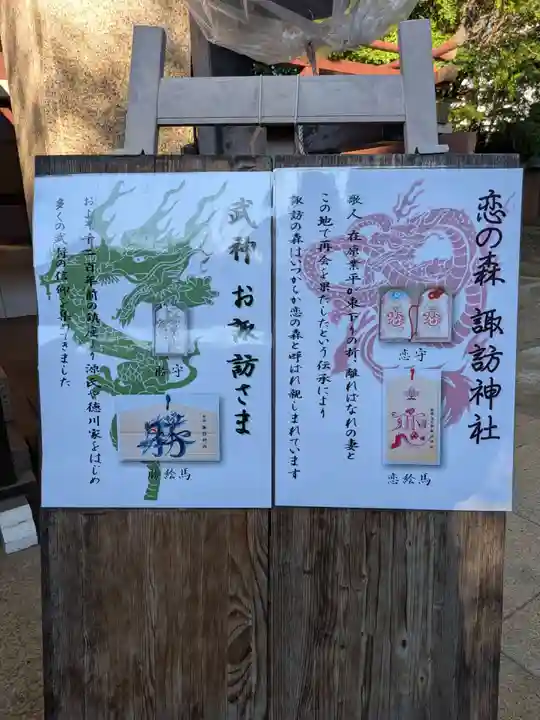 恋の森 諏訪神社
歌人 在原業平の東下りの折、離ればなれの妻と
この地で再会を果たしたという伝承により
諏訪の森はいつからか恋の森と呼ばれ親しまれています
恋守
恋絵馬
武神 お諏訪さま
の鎮座より源氏や徳川家をはじめ
多くの武将の信仰を集めてきました
守
勝
絵馬